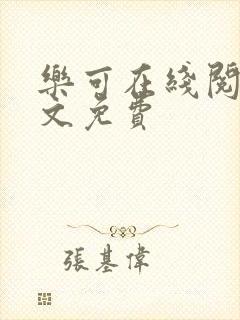 樂可在綫閱
文免費
張基偉